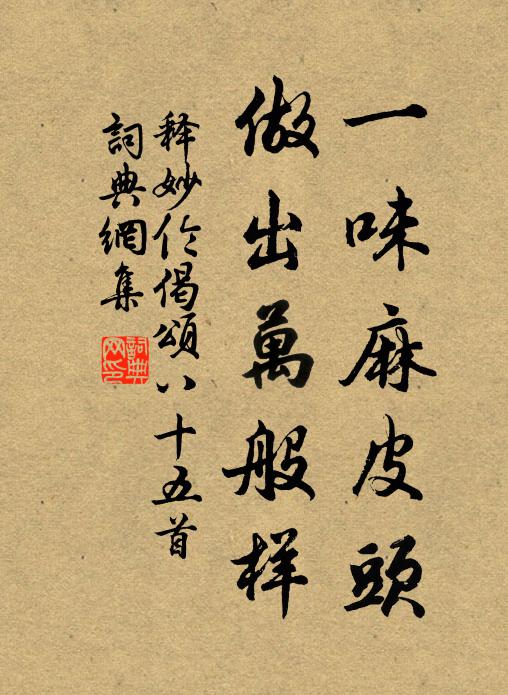 一味麻皮頭
做出萬般样
释妙伦偈頌八十五首
詞典網集
詞典
网印